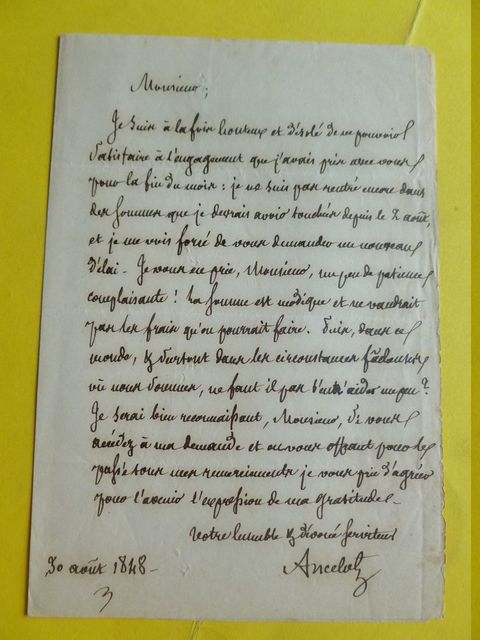 Monsieur,
Je suis à la fois honteux et désolé de ne pouvoir
satisfaire à l'engagement que j'avais pris avec vous
pour la fin du mois : je ne suis pas rentré encore dans
des sommes que je devrais avoir touchées depuis le 2 août,
et je me vois forcé de vous demander un nouveau
délai - Je vous en prie, Monsieur, un peu de patience
complaisante ! La somme est modique et ne vaudrait
pas les frais qu'on pourrait faire. Puis, dans ce
monde, & surtout dans les circonstances fâcheuses
où nous sommes, ne faut il pas s'entr'aider un peu ?
Je serai bien reconnaissant, Monsieur, si vous
accédez à ma demande et en vous offrant pour le
passé tous mes remerciments je vous prie d'agréer
pour l'avenir l'expression de ma gratitude -
Votre humble & dévoué serviteur
Ancelot
30 août 1848 -